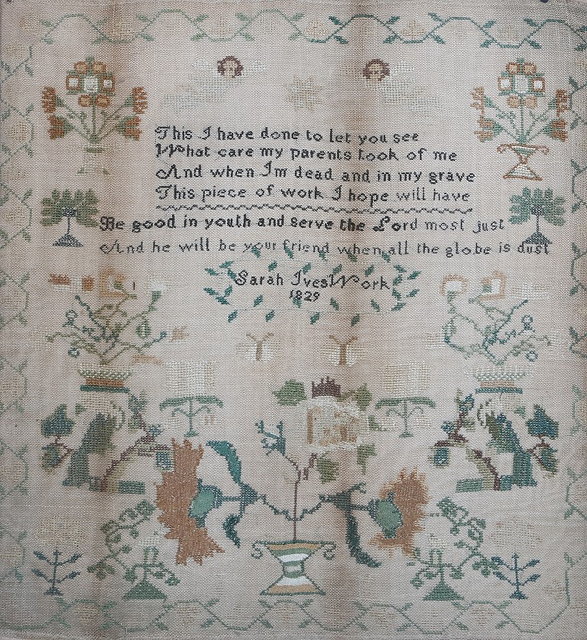 This I have done to let you see
What care my parents took of me
And when Im dead and in my grave
This piece of work I hope will have
Be good in youth and serve the Lord most just
And he will be your friend when all the globe is dust
Sarah Ives Work
1829